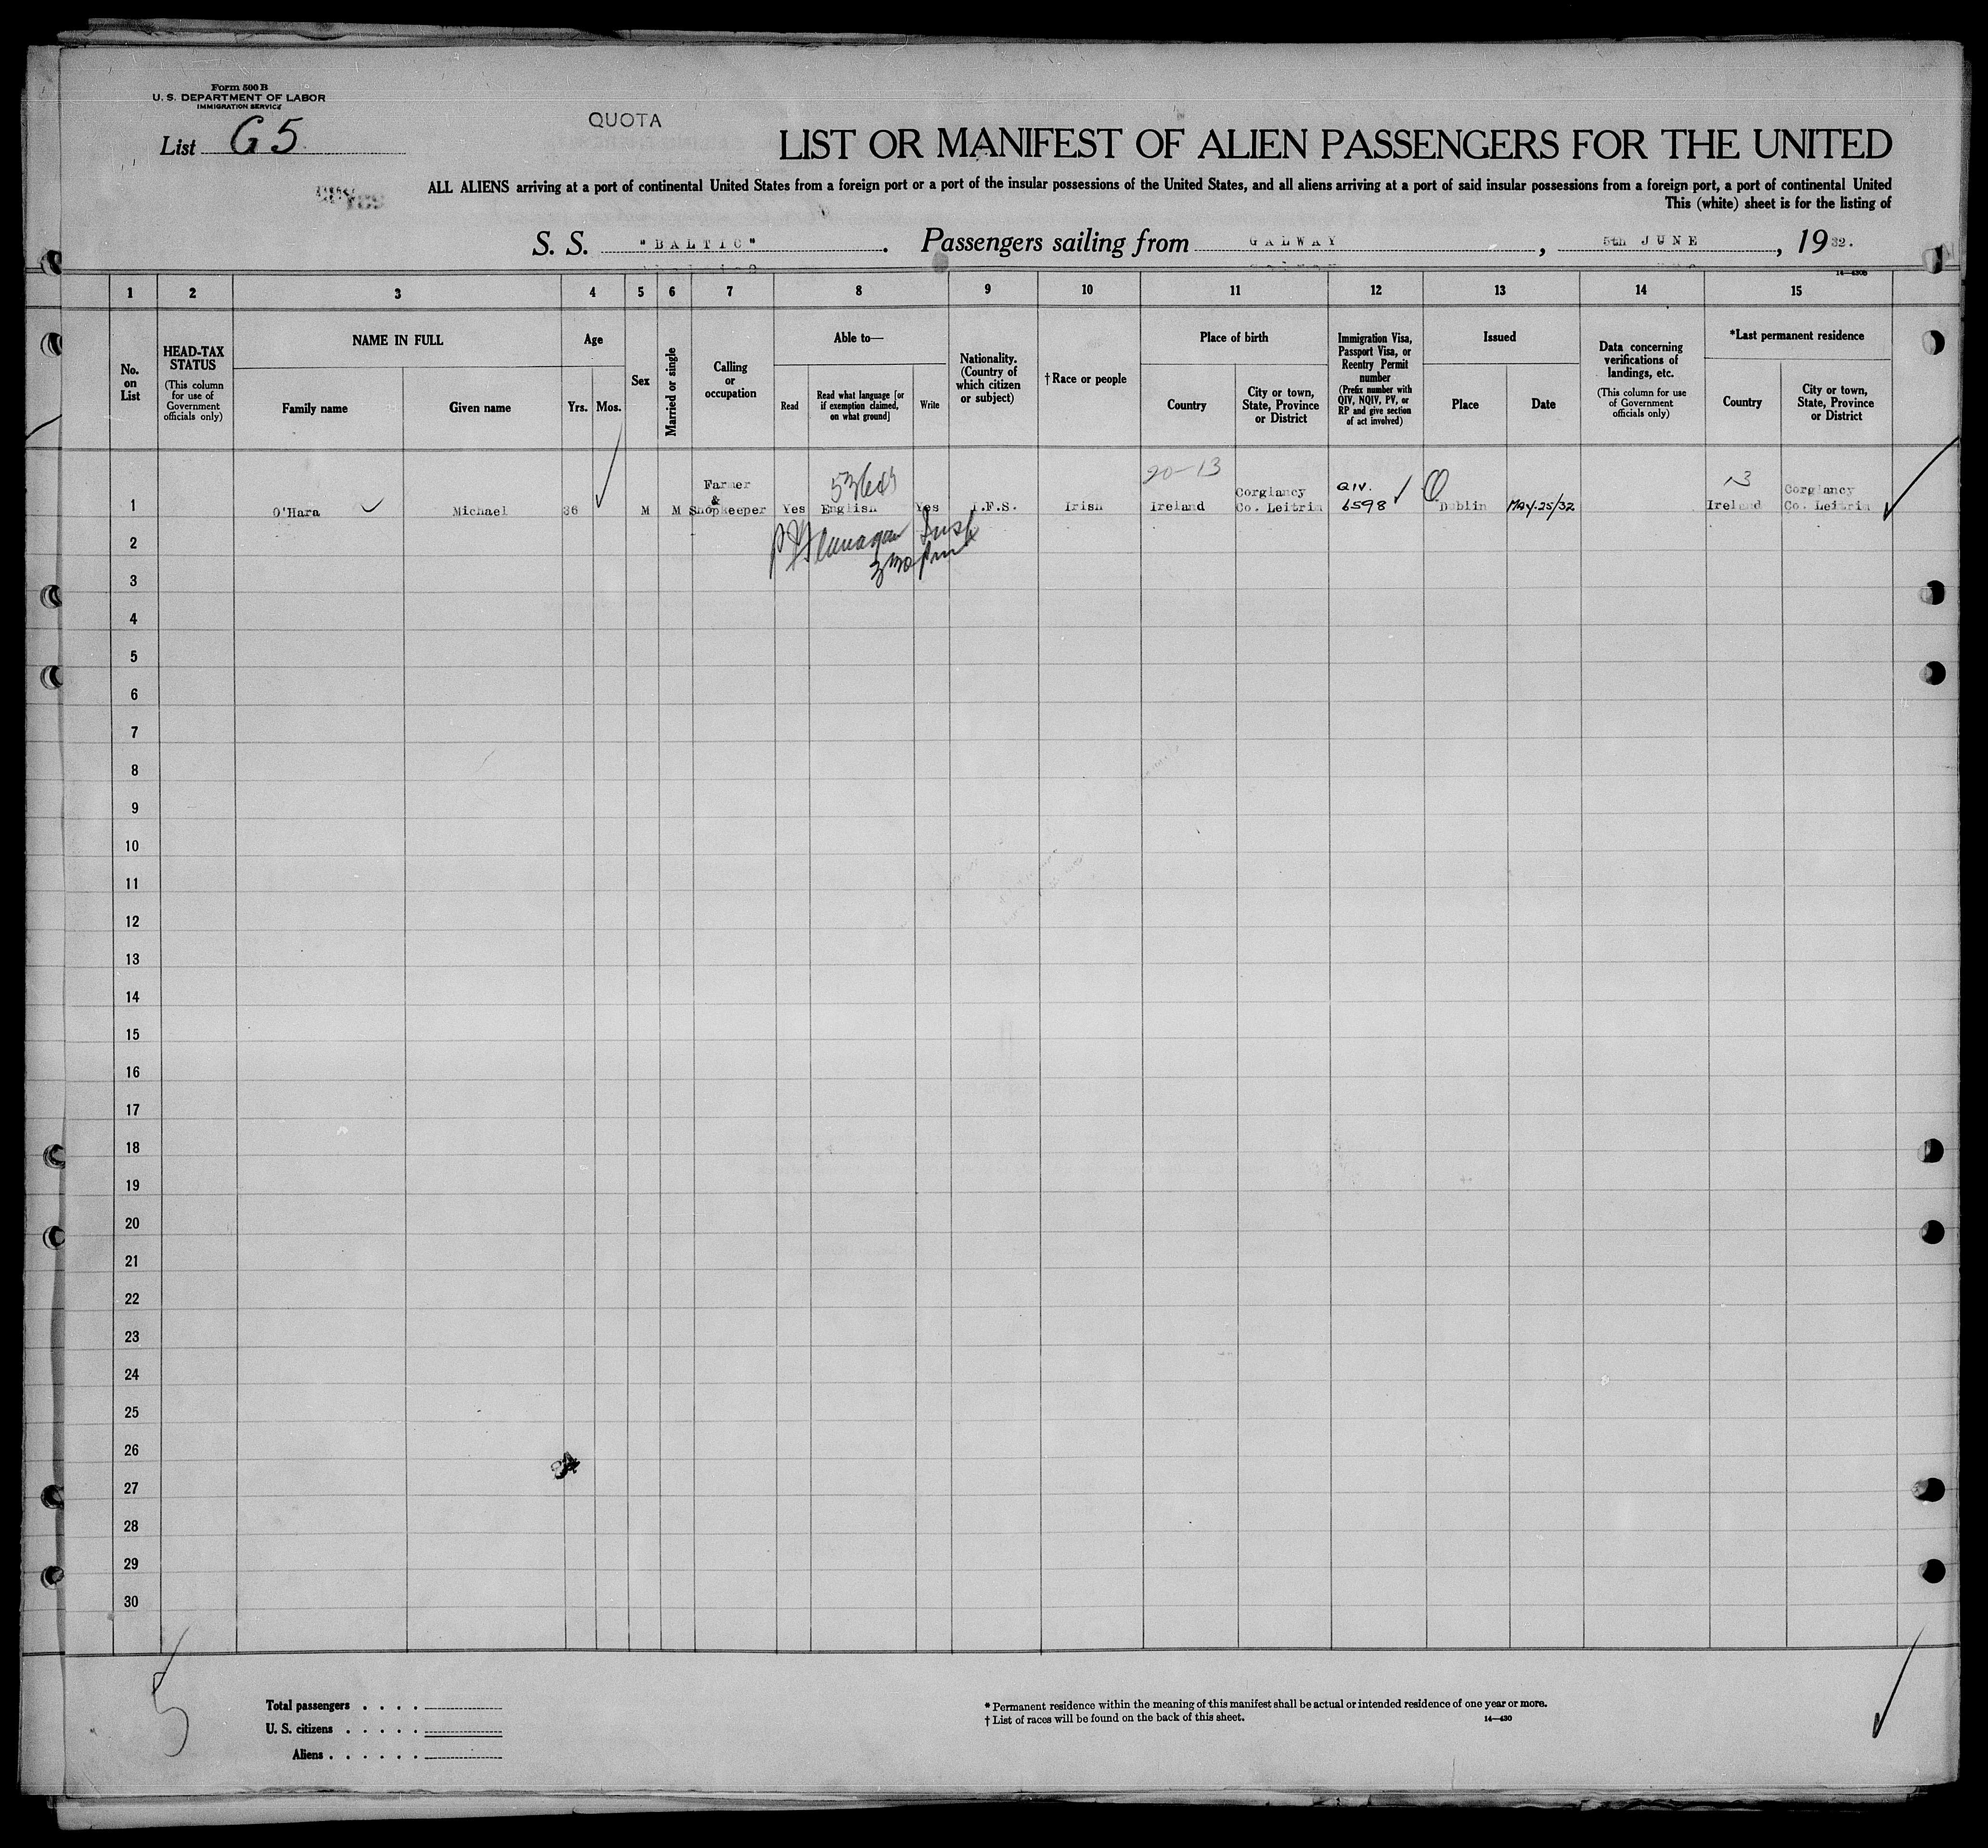 Form 500 B
U. S. DEPARTMENT OF LABOR
IMMIGRATION SERVICE
List G5
QUOTA
LIST OR MANIFEST OF ALIEN PASSENGERS FOR THE UNITED
ALL ALIENS arriving at a port of continental United States from a foreign port or a port of the insular possessions of the United States, and all aliens arriving at a port of said insular possessions from a foreign port, a port of continental United
This (white) sheet is for the listing of
S. S. "BALTIC". Passengers sailing from GALWAY, 5th JUNE, 1932.
14—430B
1 2 3 4 5 6 7 8 9 10 11 12 13 14 15
No. on List
HEAD-TAX STATUS
(This column for use of Government officials only)
NAME IN FULL
Family name
Given name
Age
Yrs.
Mos.
Sex
Married or single
Calling or occupation
Able to—
Read
Read what language [or if exemption claimed, on what ground]
Write
Nationality. (Country of which citizen or subject)
† Race or people
Place of birth
Country
City or town, State, Province or District
Immigration Visa, Passport Visa, or Reentry Permit number
(Prefix number with QIV, NQIV, PV, or RP and give section of act involved)
Issued
Place
Date
Data concerning verifications of landings, etc.
(This column for use of Government officials only)
*Last permanent residence
Country
City or town, State, Province or District
20-13
13
Farmer
&
Corglancy
QIV.
Corglancy
1 O'Hara Michael 36 M M Shopkeeper Yes English Yes I.F.S. Irish Ireland Co. Leitrim 6598 Dublin MAY.25/32 Ireland Co. Leitrim
2
3
4
5
6
7
8
9
10
11
12
13
14
15
16
17
18
19
20
21
22
23
24
25
26
27
28
29
30
5
Total passengers . . . .
U. S. citizens . . . . .
Aliens . . . . . .
* Permanent residence within the meaning of this manifest shall be actual or intended residence of one year or more.
† List of races will be found on the back of this sheet.
14—430